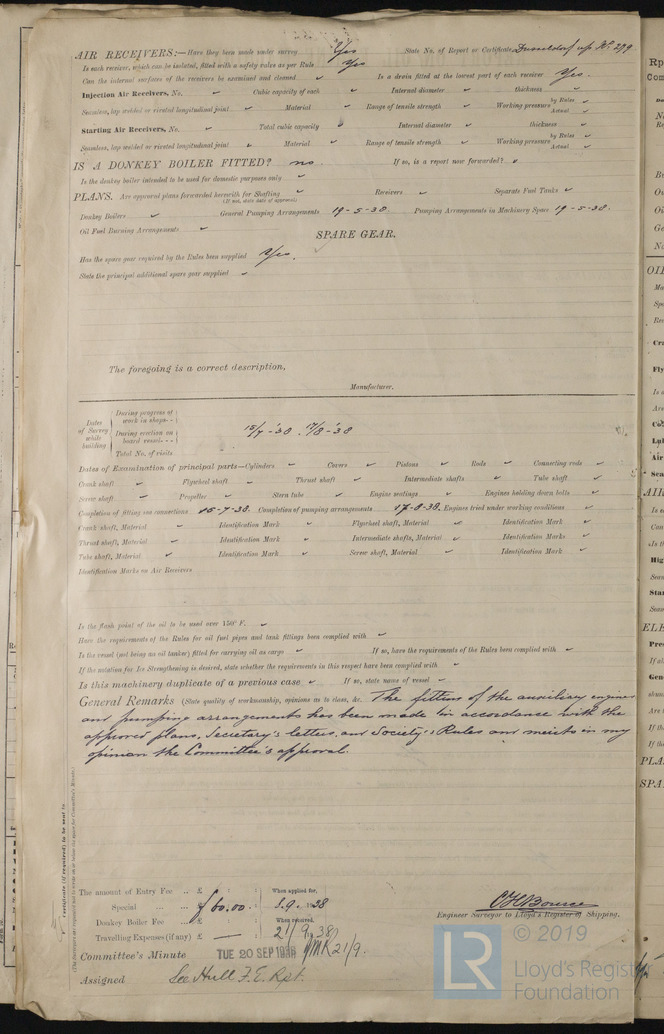 AIR RECEIVERS:— Have they been made under survey Yes State No. of Report or Certificate Dusseldorf
Is each receiver, which can be isolated, fitted with a safety valve as per Rule Yes
Can the internal surfaces of the receivers be examined and cleaned ✓ Is a drain fitted at the lowest part of each receiver Yes.
Injection Air Receivers, No. ✓ Cubic capacity of each ✓ Internal diameter ✓ thickness ✓
Seamless, lap welded or riveted longitudinal joint ✓ Material ✓ Range of tensile strength ✓ Working pressure by Rules ✓ Actual ✓
Starting Air Receivers, No. ✓ Total cubic capacity ✓ Internal diameter ✓ thickness ✓
Seamless, lap welded or riveted longitudinal joint ✓ Material ✓ Range of tensile strength ✓ Working pressure by Rules ✓ Actual ✓
IS A DONKEY BOILER FITTED? no. If so, is a report now forwarded? ✓
Is the donkey boiler intended to be used for domestic purposes only ✓
PLANS. Are approved plans forwarded herewith for Shafting ✓ Receivers ✓ Separate Fuel Tanks ✓
(If not, state date of approval)
Donkey Boilers ✓ General Pumping Arrangements 19-5-38. Pumping Arrangements in Machinery Space 19-5-38.
Oil Fuel Burning Arrangements ✓
SPARE GEAR.
Has the spare gear required by the Rules been supplied Yes.
State the principal additional spare gear supplied ✓
The foregoing is a correct description,
Manufacturer.
Dates of Survey while building
During progress of work in shops - -
During erection on board vessel - - - 15/7-'38. 17/8-'38
Total No. of visits
Dates of Examination of principal parts—Cylinders ✓ Covers ✓ Pistons ✓ Rods ✓ Connecting rods ✓
Crank shaft ✓ Flywheel shaft ✓ Thrust shaft ✓ Intermediate shafts ✓ Tube shaft ✓
Screw shaft ✓ Propeller ✓ Stern tube ✓ Engine seatings ✓ Engines holding down bolts ✓
Completion of fitting sea connections 15-7-38. Completion of pumping arrangements 17-8-38. Engines tried under working conditions ✓
Crank shaft, Material ✓ Identification Mark ✓ Flywheel shaft, Material ✓ Identification Mark ✓
Thrust shaft, Material ✓ Identification Mark ✓ Intermediate shafts, Material ✓ Identification Marks ✓
Tube shaft, Material ✓ Identification Mark ✓ Screw shaft, Material ✓ Identification Mark ✓
Identification Marks on Air Receivers
Is the flash point of the oil to be used over 150° F. ✓
Have the requirements of the Rules for oil fuel pipes and tank fittings been complied with ✓
Is the vessel (not being an oil tanker) fitted for carrying oil as cargo ✓ If so, have the requirements of the Rules been complied with ✓
If the notation for Ice Strengthening is desired, state whether the requirements in this respect have been complied with ✓
Is this machinery duplicate of a previous case ✓ If so, state name of vessel ✓
General Remarks (State quality of workmanship, opinions as to class, &c. The fitting of the auxiliary engines
and pumping arrangements has been made in accordance with the
approved plans, Secretary's letters, and Society's Rules and merits in my
opinion the Committee's approval.
The amount of Entry Fee .. £ : : When applied for,
Special ... ... £ 60.00 : 3.9.1938
Donkey Boiler Fee ... £ : : When received,
Travelling Expenses (if any) £ — : 21/9/38
Engineer Surveyor to Lloyd's Register of Shipping.
Committee's Minute TUE 20 SEP 1938 21/9.
Assigned See Hull F.E. Rpt.
© 2019
LR
Lloyd's Register
Foundation